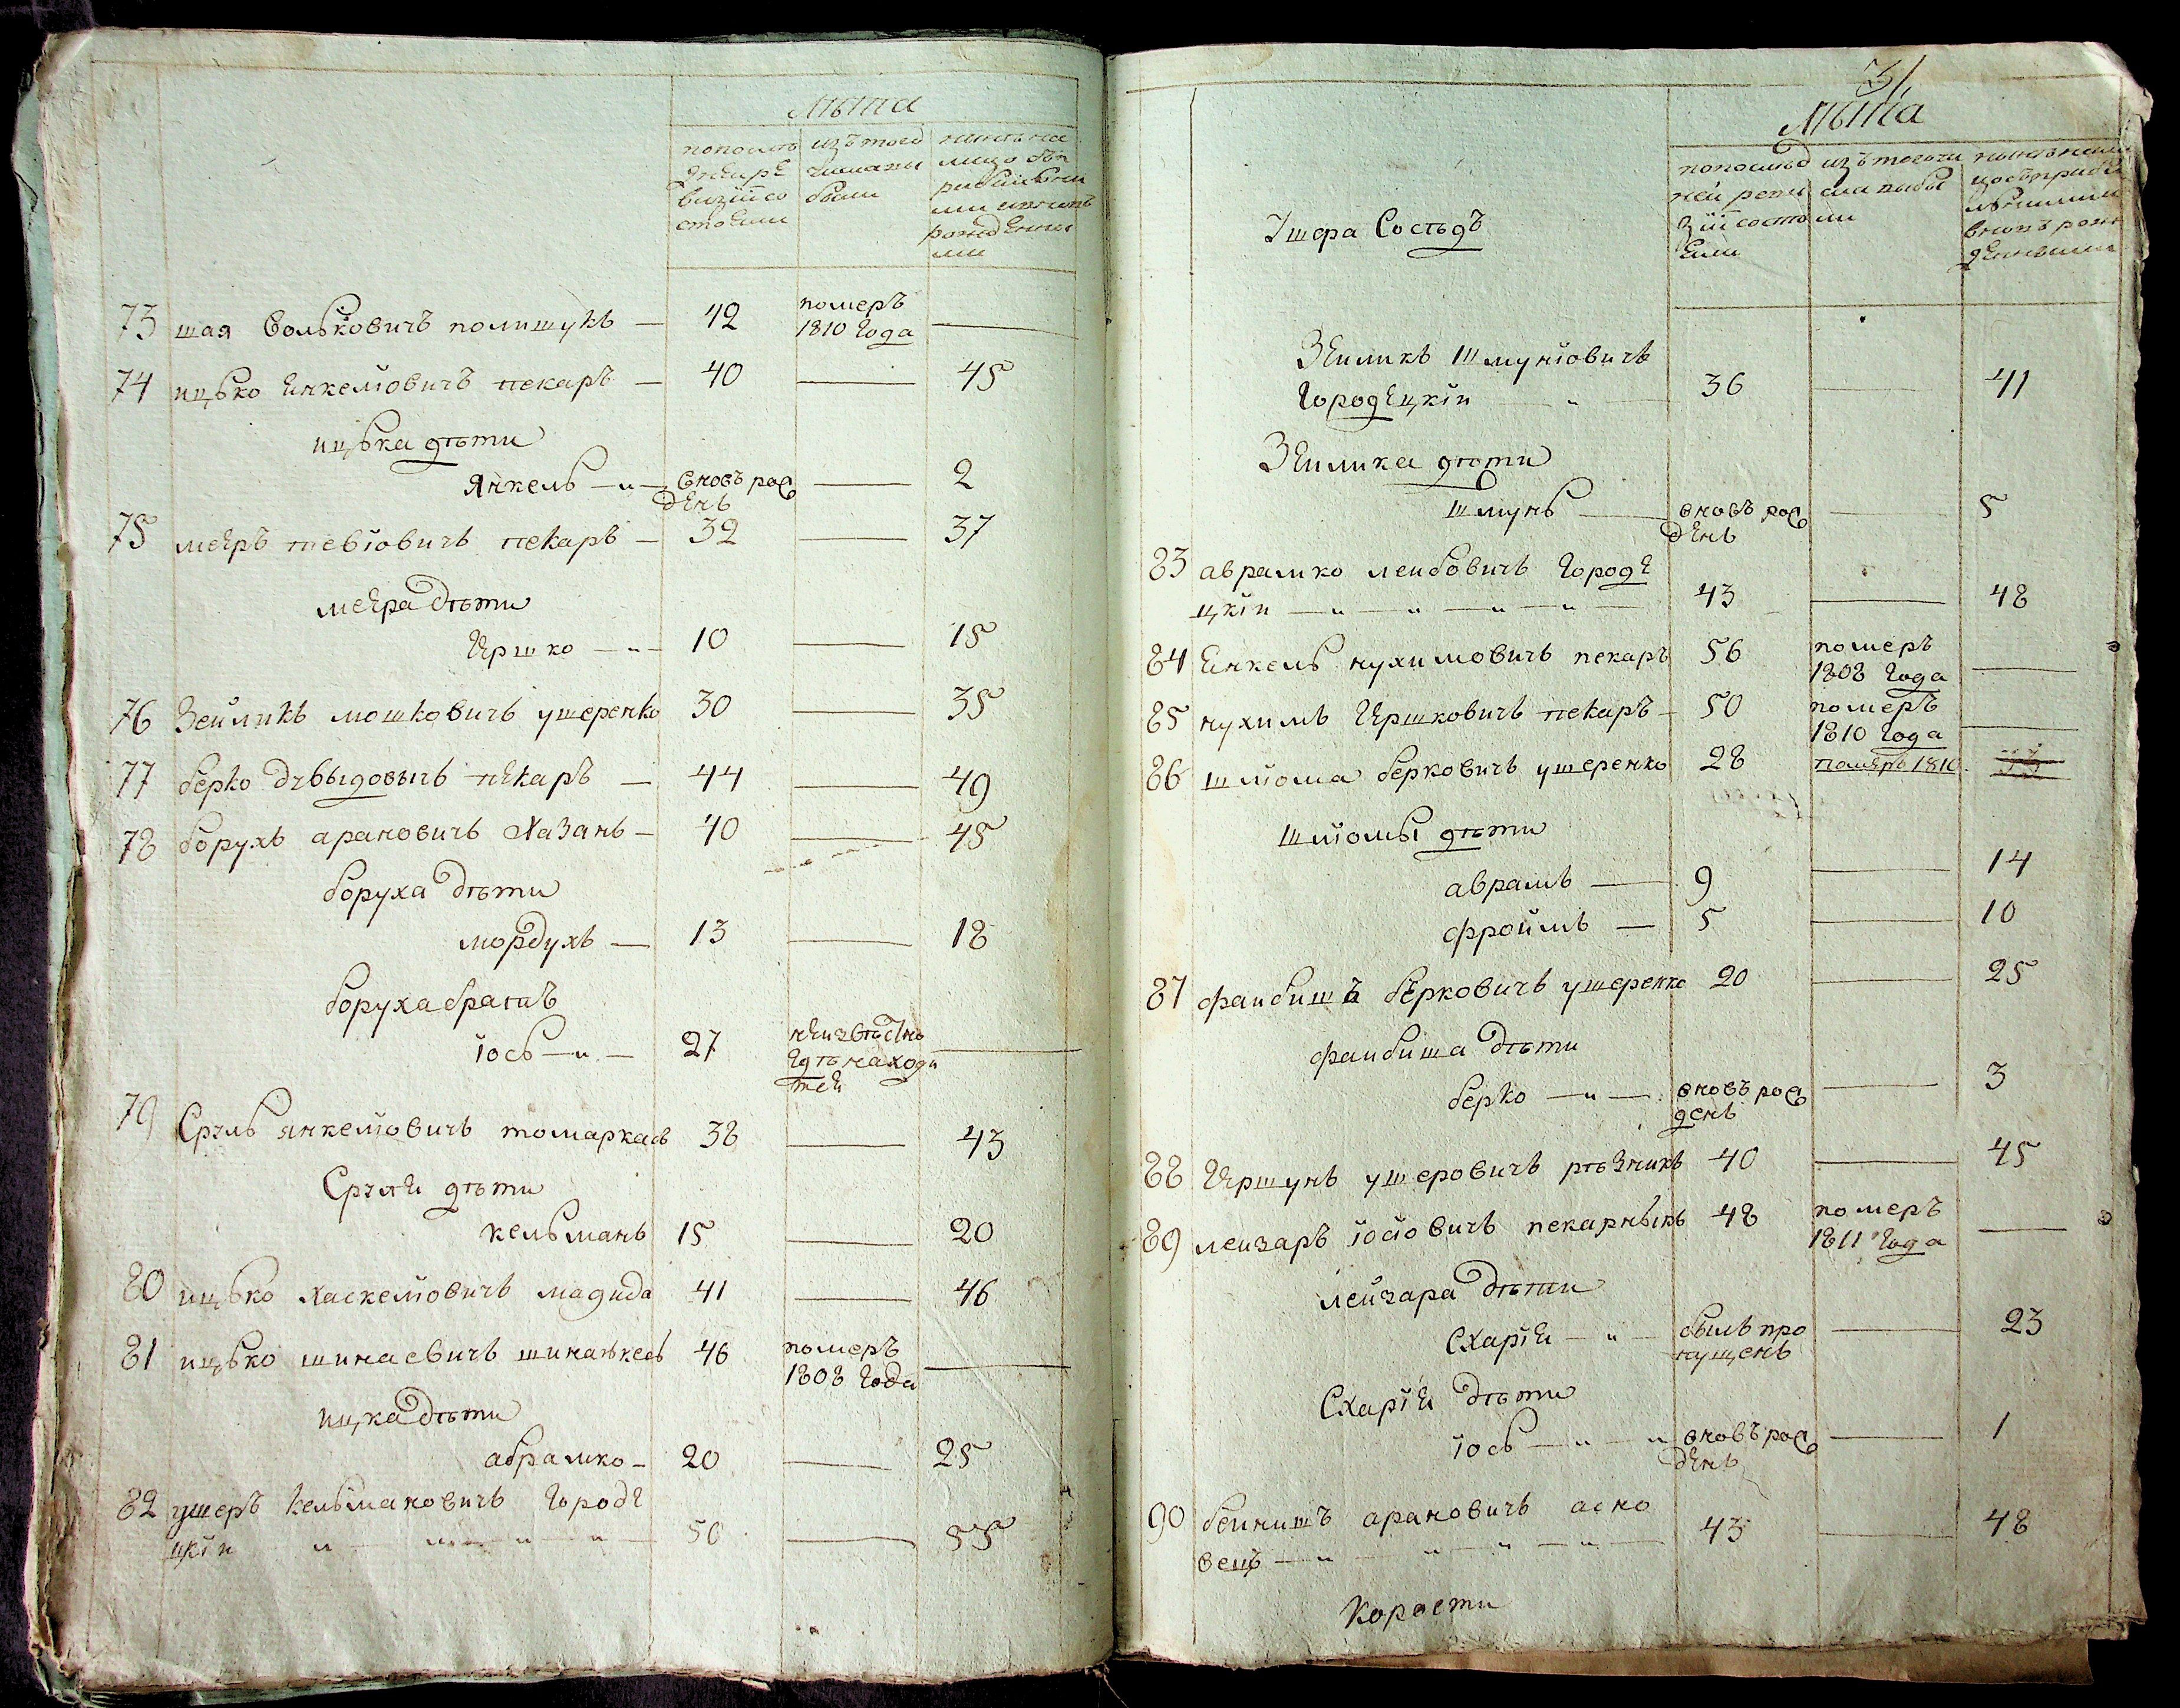 Лѣта
попослѣ
днѣй ре
визіи со
стояли
изъ того
числа вы
были
нынѣ на
лицо съ
рожденны
ми
73 шая Вольковичъ полишукъ — 42 померъ
1810 Года —
74 ицько Енкелiовичъ пекаръ — 40 — 45
ицька дѣти
Янкель — вновь рож — 2
денъ
75 меєръ тевiовичъ пекаръ — 32 — 37
меєра дѣти
Гершко — 10 — 15
76 Зейликъ мошковичъ ушеренко 30 — 35
77 берко двыдовычъ пекаръ — 44 — 49
78 борухъ арановичъ Хазанъ — 40 — 45
боруха дѣти
мордухъ — 13 — 18
боруха братъ
iось — 27 неизвѣстно —
гдѣ находи
тся
79 Сруль янкелiовичъ томаркасъ 38 — 43
Сруля дѣти
кельманъ 15 — 20
80 ицько хаскелiовичъ магида 41 — 46
81 ицько шинаевичъ 46 померъ
1808 Года —
ицка дѣти
абрамко — 20 — 25
82 ушеръ кельмановичъ Городе
цкiй — 50 — 55
31
Лѣта
попослѣд
ней реви
зіи состо
яли
изъ того чи
сла выбы
ли
нынѣ нали
цо съ прибы
лыми и
вновь рож
денными
Ушера Сосѣдъ
Зеиликъ Шмунiовичъ
Городецкiй — 36 — 41
Зеилика дѣти
Шмунь — вновь рож — 5
денъ
83 аврамко леибовичъ Городе
цкiй — 43 — 48
84 Енкель нухимовичъ пекаръ 56 померъ
1808 Года —
85 нухимъ Гершковичъ пекаръ — 50 померъ
1810 Года —
86 шлiома берковичъ ушеренко 28 померъ 1810
шлiомы дѣти
аврамъ — 9 — 14
фроймъ — 5 — 10
87 фаибишъ берковичъ ушеренко 20 — 25
фаибиша дѣти
берко — вновь рож — 3
денъ
88 Гершунъ ушеровичъ рѣзникъ 40 — 45
89 леизаръ iосiовичъ пекарныкъ 48 померъ
1811 Года —
леизара дѣти
Схарiя — былъ про — 23
пущенъ
Схарiи дѣти
iось — вновь рож — 1
денъ
90 беинишъ арановичъ асно
вецъ — 43 — 48
Корости